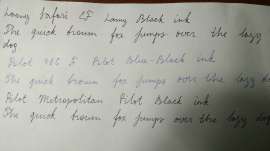 Lamy Safari EF Lamy Black ink
The quick brown fox jumps over the lazy
dog
Pilot F Pilot Blue-Black ink
The quick brown fox jumps over the lazy
Pilot Metropolitan Pilot Black ink
The quick brown fox jumps over the lazy dog